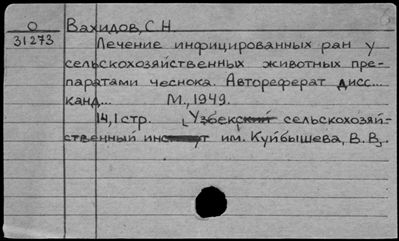 О Вахидов, С.Н.
31273
Лечение инфицированных ран у
сельскохозяйственных животных пре-
паратами чеснока. Автореферат дисс...
канд... М., 1949.
14,1 стр. [Узбекский сельскохозяй-
ственный институт им. Куйбышева, В. В].